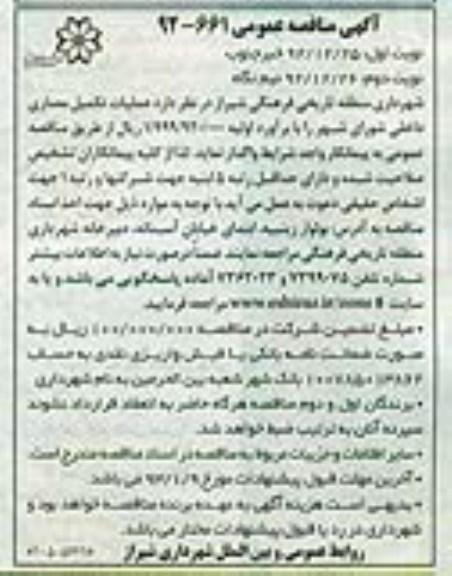 آگهی مناقصه عمومی ۶۶۱-۹۲
نوبت اول: ۹۲/۱۲/۲۵ خبر جنوب
نوبت دوم: ۹۲/۱۲/۲۶ نیم نگاه
شهرداری منطقه تاریخی فرهنگی شیراز در نظر دارد عملیات تکمیل معماری
داخلی شورای شهر را با برآورد اولیه ریال از طریق مناقصه
عمومی به پیمانکار واجد شرایط واگذار نماید. لذا از کلیه پیمانکاران تشخیص
صلاحیت شده و دارای حداقل رتبه ۵ ابنیه جهت شرکتها و رتبه ۱ جهت
اشخاص حقیقی دعوت به عمل می آید با توجه به موارد ذیل جهت اخذ اسناد
مناقصه به آدرس: بولوار زینبیه، ابتدای خیابان آستانه، دبیرخانه شهرداری
منطقه تاریخی فرهنگی مراجعه نمایند. ضمناً در صورت نیاز به اطلاعات بیشتر
شماره تلفن ۷۳۹۹۰۷۵ و ۷۳۶۲۰۲۳ آماده پاسخگویی می باشد و یا به
سایت مراجعه فرمایید.
• مبلغ تضمین شرکت در مناقصه ۱۰۰/۰۰۰/۰۰۰ ریال به
صورت ضمانت نامه بانکی یا فیش واریزی نقدی به حساب
بانک شهر شعبه بین الحرمین به نام شهرداری
• برندگان اول و دوم مناقصه هرگاه حاضر به انعقاد قرارداد نشوند
سپرده آنان به ترتیب ضبط خواهد شد.
• سایر اطلاعات و جزییات مربوط به مناقصه در اسناد مناقصه مندرج است.
• آخرین مهلت قبول پیشنهادات مورخ ۹۳/۱/۹ می باشد.
• بدیهی است هزینه آگهی به عهده برنده مناقصه خواهد بود و
شهرداری در رد یا قبول پیشنهادات مختار می باشد.
روابط عمومی و بین الملل شهرداری شیراز